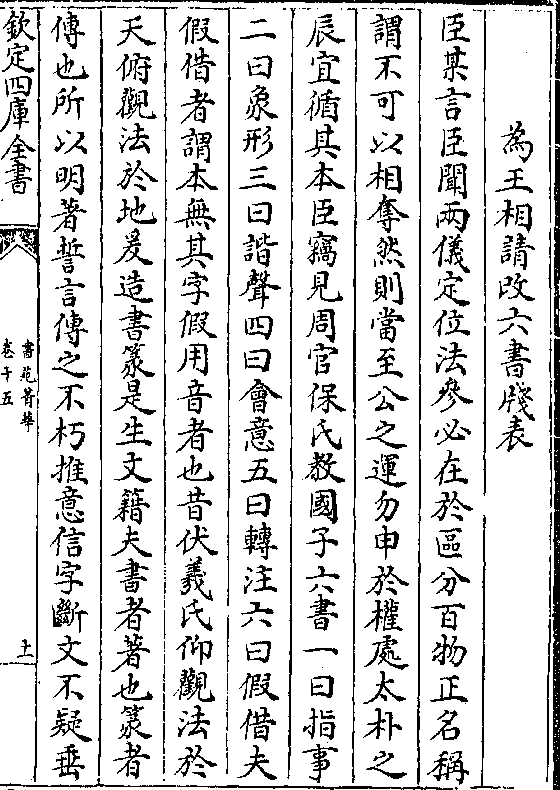 為王相請改六書牋表
臣某言臣聞兩儀定位法參必在於區分百物正名稱
謂不可以相奪然則當至公之運勿申於權處太朴之
辰宜循其本臣竊見周官保氏教國子六書一曰指事
二曰象形三曰諧聲四曰會意五曰轉注六曰假借夫
假借者謂本無其字假用音者也昔伏羲氏仰觀法於
天俯觀法於地爰造書篆是生文籍夫書者著也篆者
傳也所以明著誓言傳之不朽推意信字斷文不疑垂
欽定四庫全書
書苑菁華
卷十五
十一